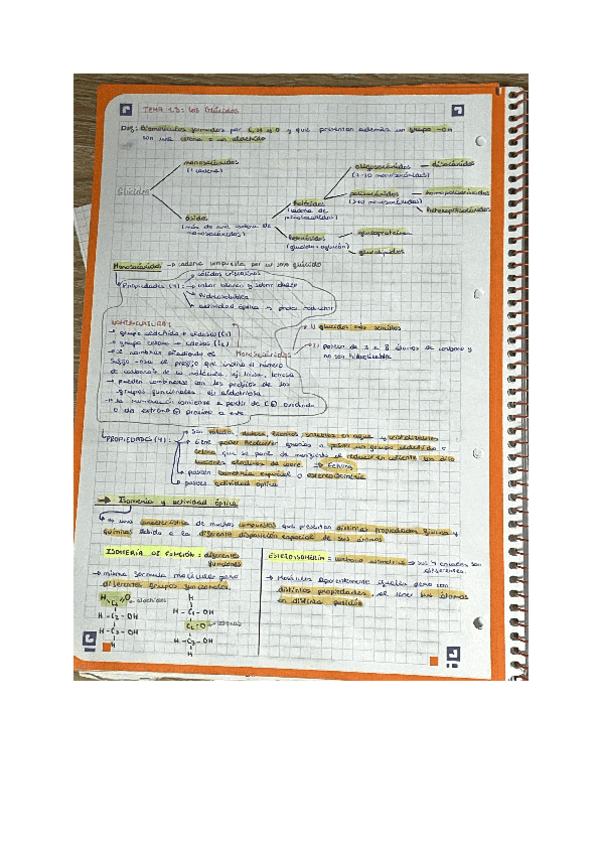 TEMA 1.3: Los Glúcidos
Def: Biomoléculas formadas por C, H y O y que presentan además un grupo -OH
son una cetona o un aldehído
monosacáridos
(1 cadena)
Glúcidos
ósidos
(más de una cadena de
monosacáridos)
holósidos
(cadena de
monosacáridos)
heterósidos
(glúcido + aglucón)
oligosacáridos
(2-10 monosacáridos)
disacáridos
polisacáridos
(>10 monosacáridos)
homopolisacáridos
heteropolisacáridos
glucoproteínas
glucolípidos
Monosacáridos → cadena compuesta por un solo glúcido
Propiedades (4):
sólidos cristalinos
color blanco y sabor dulce
hidrosolubles
actividad óptica y poder reductor
NOMENCLATURA:
→ grupo aldehído → aldosa (C1)
→ grupo cetona → cetosa (C2)
→ Se nombran añadiendo el
sufijo -osa al prefijo que indica el número
de carbonos de la molécula ej: triosa, tetrosa
→ pueden combinarse con los prefijos de los
grupos funcionales. ej: aldotriosa
→ Su numeración comienza a partir de C
o del extremo próximo a este
Monosacáridos
glúcidos más sencillos
poseen de 3 a 8 átomos de carbono y
no son hidrolizables
PROPIEDADES (4):
→ Son sólidos, dulces, blancos, solubles en agua → cristalizables
→ tiene poder reductor gracias a poseer un grupo aldehído o
cetona que se pone de manifiesto al reducir en caliente una
disolución alcalina de cobre. → Fehling
→ poseen isomería espacial o estereoisomería
→ poseen actividad óptica
→ Isomería y actividad óptica
→ una característica de muchos compuestos que presentan distintas propiedades físicas y
químicas debido a la diferente disposición espacial de sus átomos
ISOMERÍA DE FUNCIÓN: diferentes
funciones
→ misma fórmula molecular pero
diferentes grupos funcionales
H
C1
O
aldehídos
H - C2 - OH
H - C3 - OH
H
H
H - C1 - OH
C2 = O
H - C3 - OH
H
ESTEREOISOMERÍA = carbono asimétrico → sus 4 enlaces son
diferentes.
→ Moléculas aparentemente iguales pero con
distintas propiedades, al tener sus átomos
en distinta posición